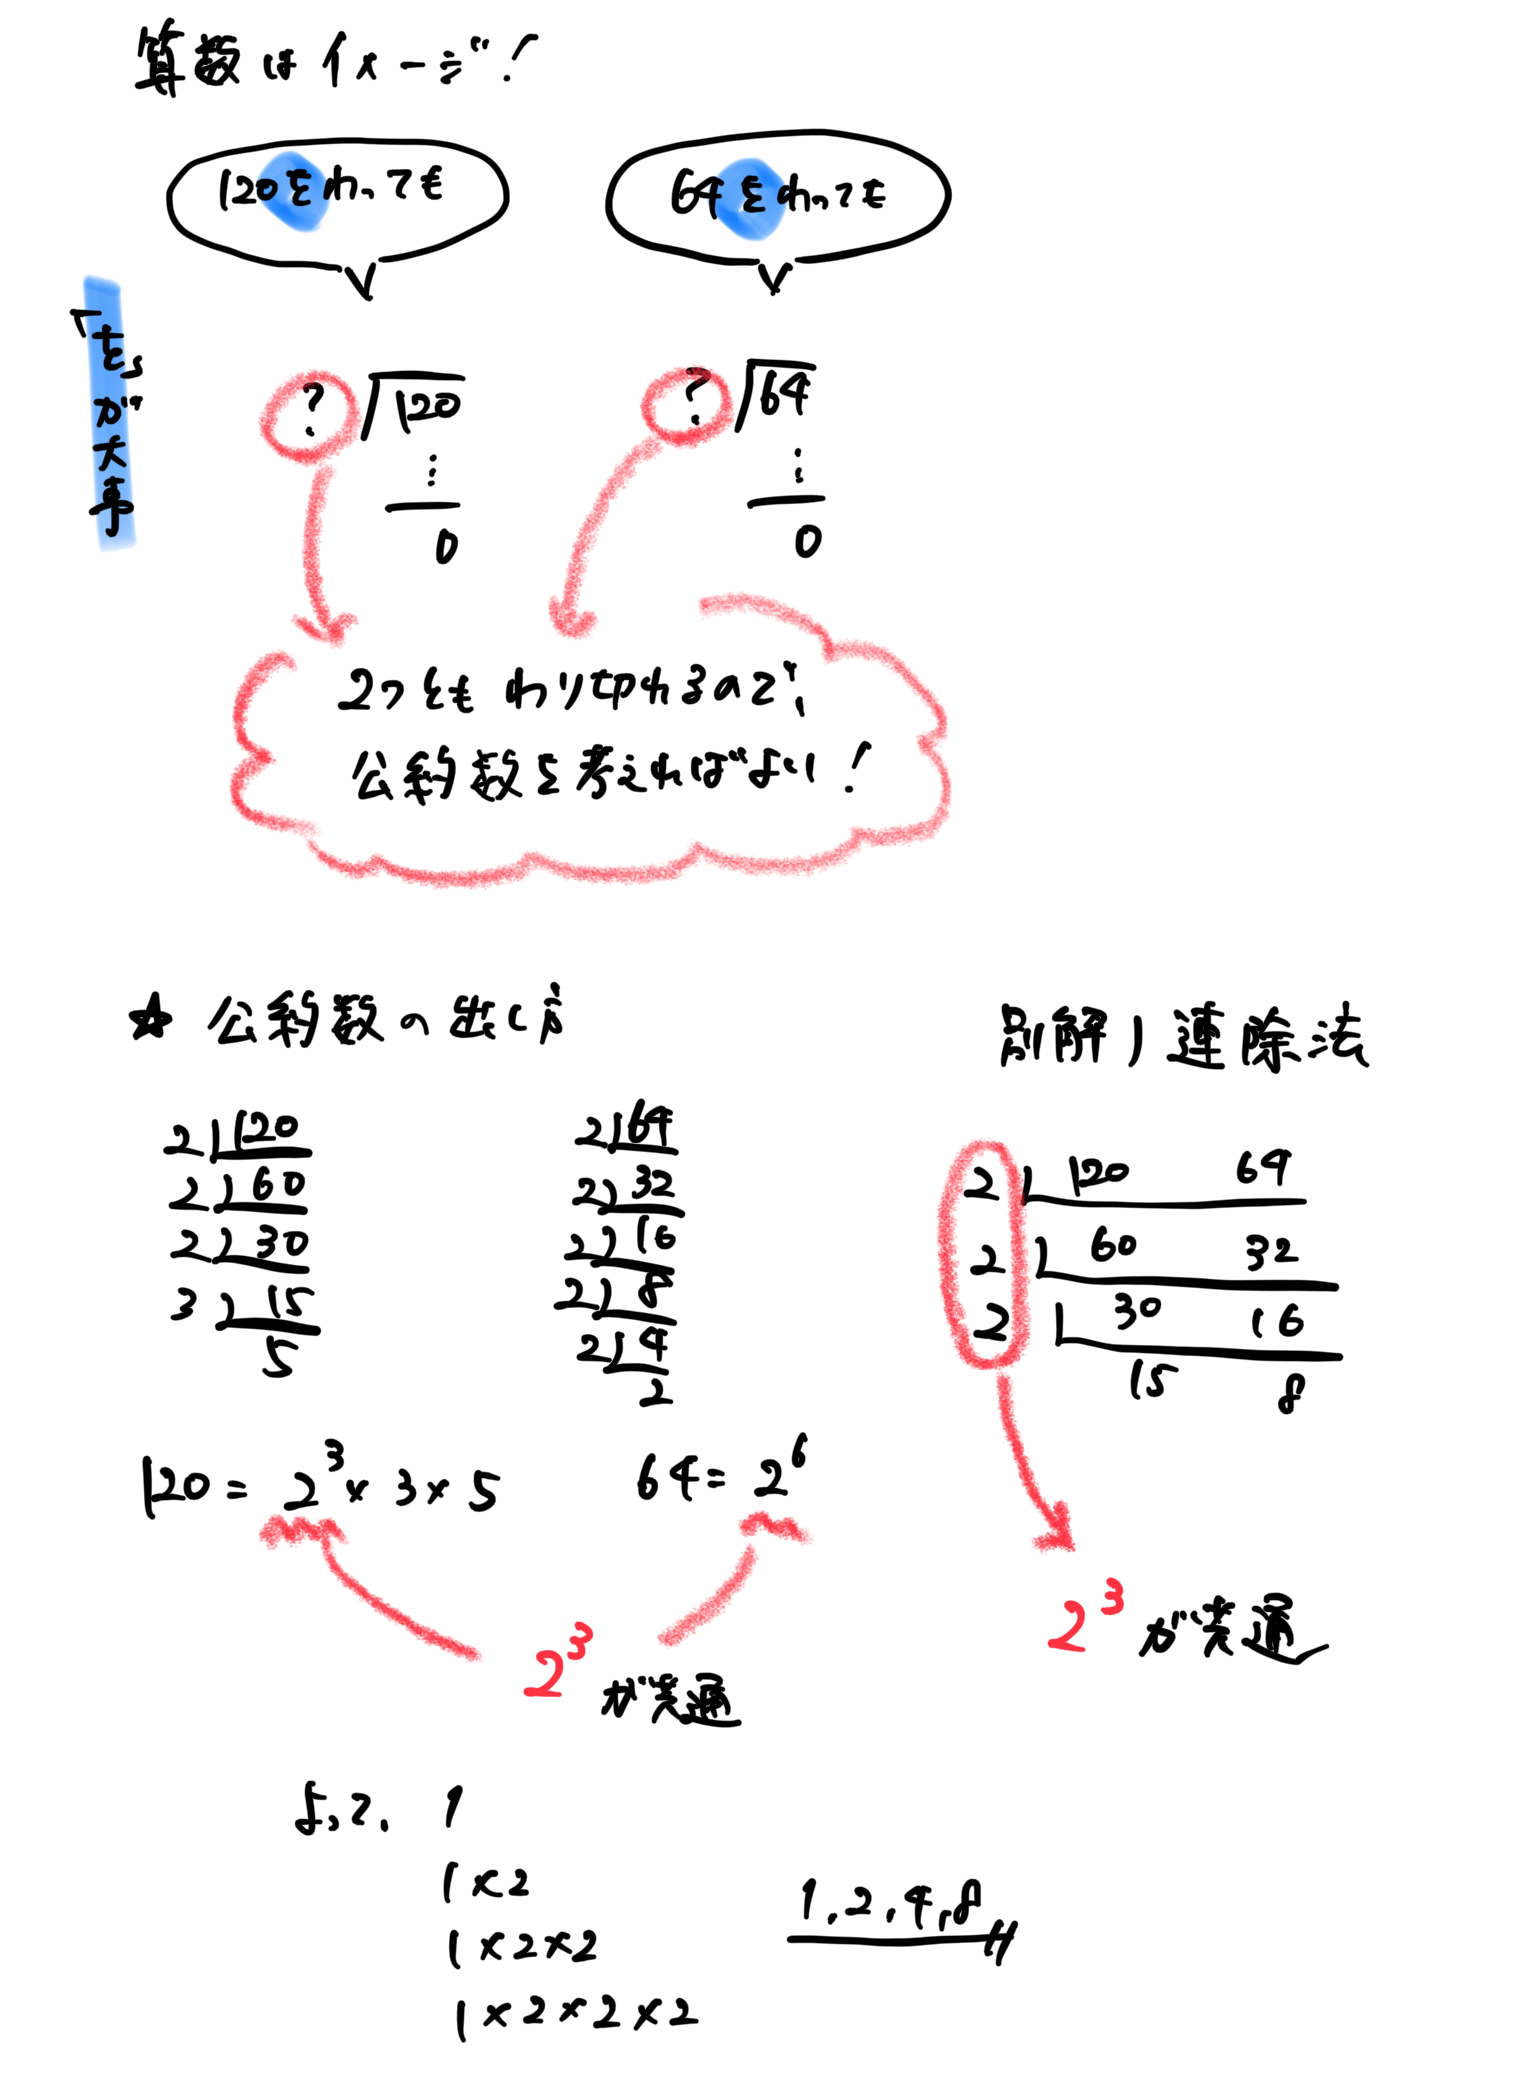 算数はイメージ!
120をわっても
64をわっても
「を」が大事
? 120
⋮
0
? 64
⋮
0
2つともわり切れるので、
公約数を考えればよい!
☆ 公約数の出し方
2 120
2 60
2 30
3 15
5
2 64
2 32
2 16
2 8
2 4
2
120 = 2³ × 3 × 5
64 = 2⁶
2³ が共通
別解)連除法
2 120 64
2 60 32
2 30 16
15 8
2³ が共通
よって、 1
1 × 2
1 × 2 × 2
1 × 2 × 2 × 2
1, 2, 4, 8